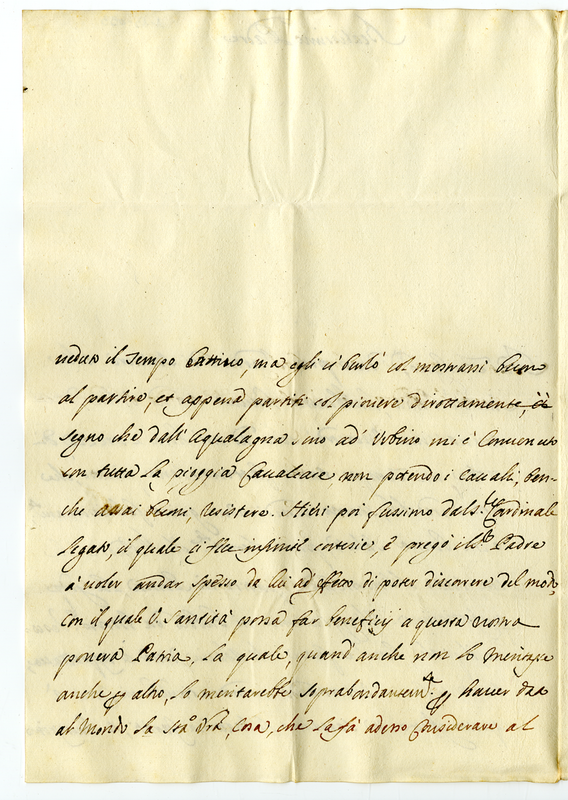 veduto il Tempo Cattivo, ma egli ci burlò col mostrarsi buon
al partire, et appena partiti col piovere dirottamente, à
segno che dall' Aqualagna sino ad Urbino mi è Convenuto
con tutta la pioggia Cavalcare non potendo i cavali, ben-
che assai buoni, resistere. Hieri poi fussimo dal S.r Cardinale
Legato, il quale ci fece infinite cortesie, e pregò il S.r Padre
à voler andar spesso da lui ad effetto di poter discorrere del modo,
con il quale V. Santità possa far beneficij a questa nostra
povera Patria, la quale, quand' anche non lo meritasse
anche altro, lo meritarebbe soprabondantem.te haver dato
al Mondo la S.tà V.ra, Cosa, che la fà adesso Considerare al